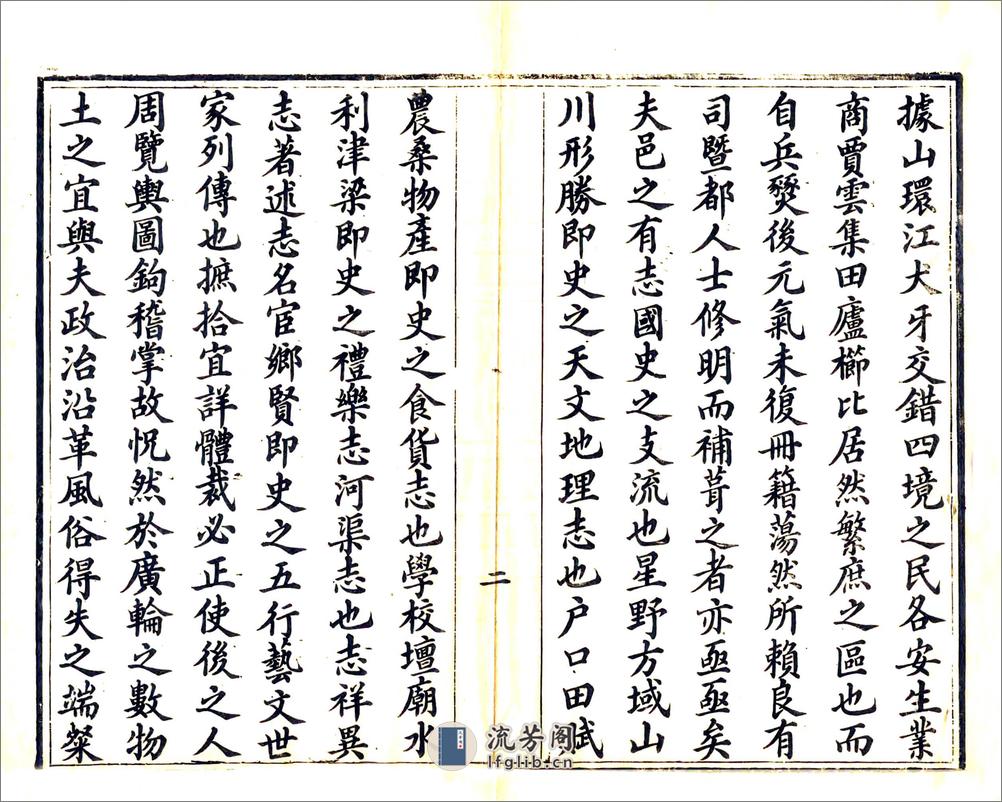 據山環江犬牙交錯四境之民各安生業
商賈雲集田廬櫛比居然繁庶之區也而
自兵燹後元氣未復冊籍蕩然所賴良有
司暨都人士修明而補葺之者亦亟亟矣
夫邑之有志國史之支流也星野方域山
川形勝即史之天文地理志也户口田賦
二
農桑物產即史之食貨志也學校壇廟水
利津梁即史之禮樂志河渠志也志祥異
志著述志名宦鄉賢即史之五行藝文世
家列傳也摭拾宜詳體裁必正使後之人
周覽輿圖鉤稽掌故怳然於廣輪之數物
土之宜與夫政治沿革風俗得失之端粲
流芳阁
lfglib.cn